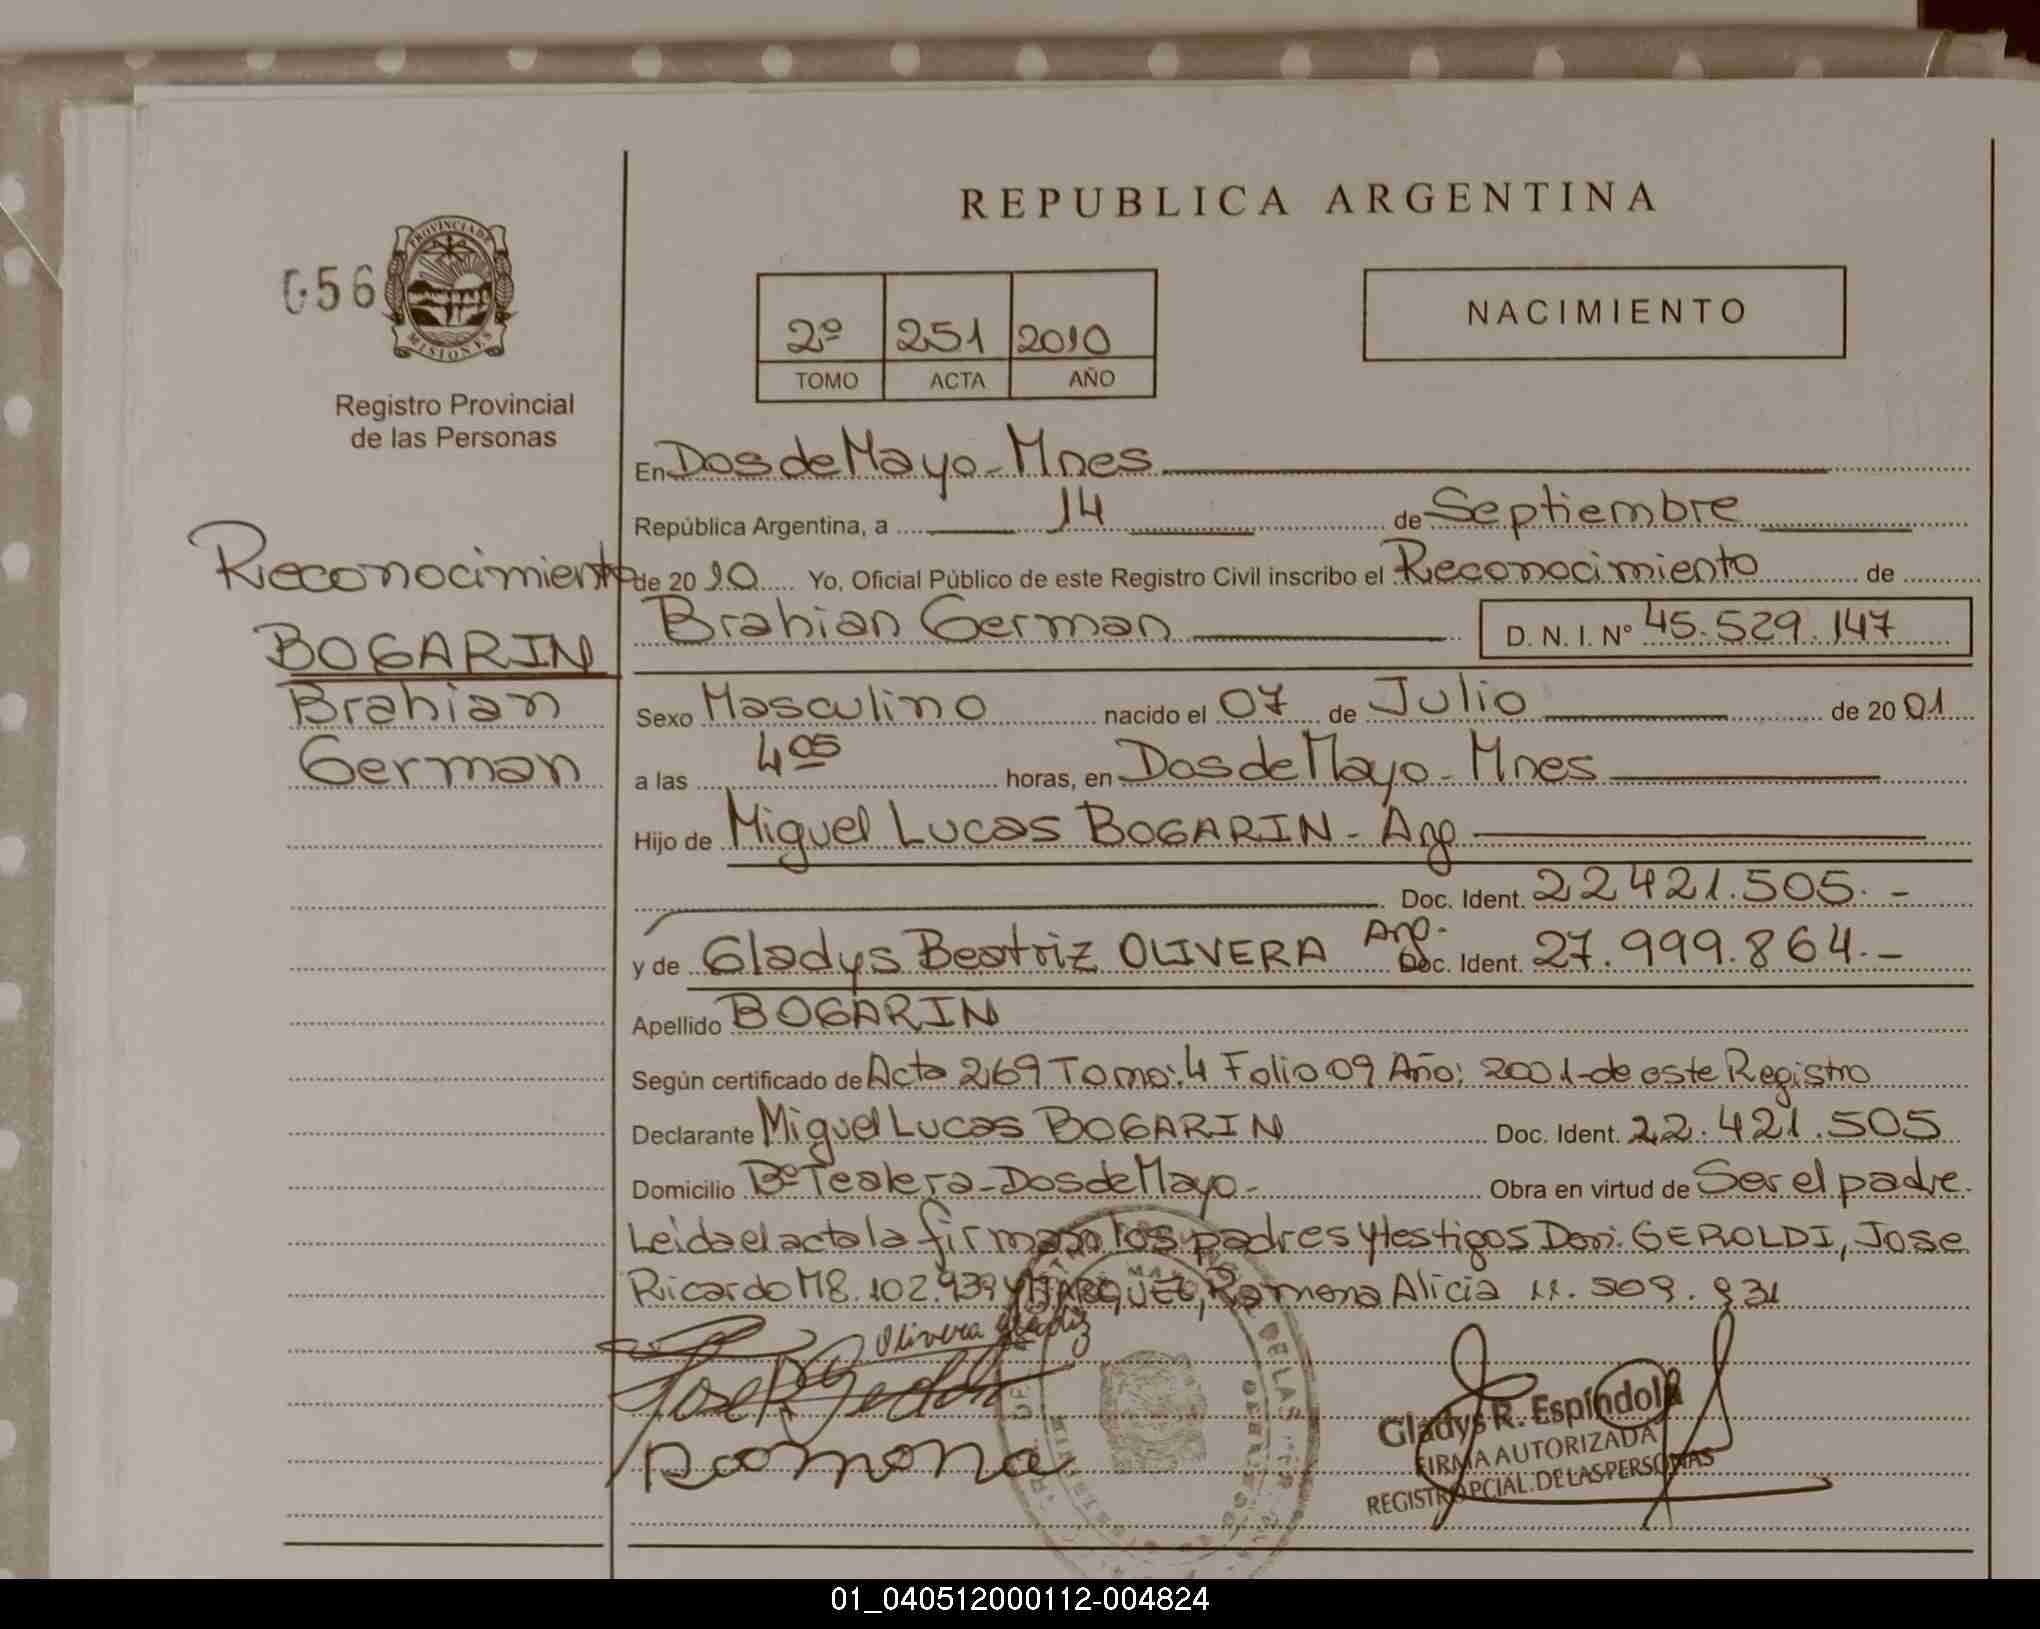 REPUBLICA ARGENTINA
056
PROVINCIA DE
MISIONES
Registro Provincial
de las Personas
2º 251 2010
TOMO ACTA AÑO
NACIMIENTO
Reconocimiento
BOGARIN
Brahian
German
En Dos de Mayo - Mnes
República Argentina, a 14 de Septiembre
de 2010 Yo, Oficial Público de este Registro Civil inscribo el Reconocimiento de
Brahian German D. N. I. Nº 45.529.147
Sexo Masculino nacido el 07 de Julio de 2001
a las 4 05 horas, en Dos de Mayo - Mnes
Hijo de Miguel Lucas BOGARIN - Arg
Doc. Ident. 22 421.505. -
y de Gladys Beatriz OLIVERA Arg. Doc. Ident. 27.999.864. -
Apellido BOGARIN
Según certificado de Acta 269 Tomo: 4 Folio 09 Año: 2001 - de este Registro
Declarante Miguel Lucas BOGARIN Doc. Ident. 22.421.505
Domicilio Bº Tealera - Dos de Mayo - Obra en virtud de Ser el padre.
Leida el acta la firman los padres y testigos Don: GEROLDI, Jose
Ricardo M8.102.939 y MARQUEZ, Ramona Alicia 11.509.831
Olivera Gladiz
Jose R Geroldi
Ramona
Gladys R. Espíndola
FIRMA AUTORIZADA
REGISTRO PCIAL. DE LAS PERSONAS
01_040512000112-004824